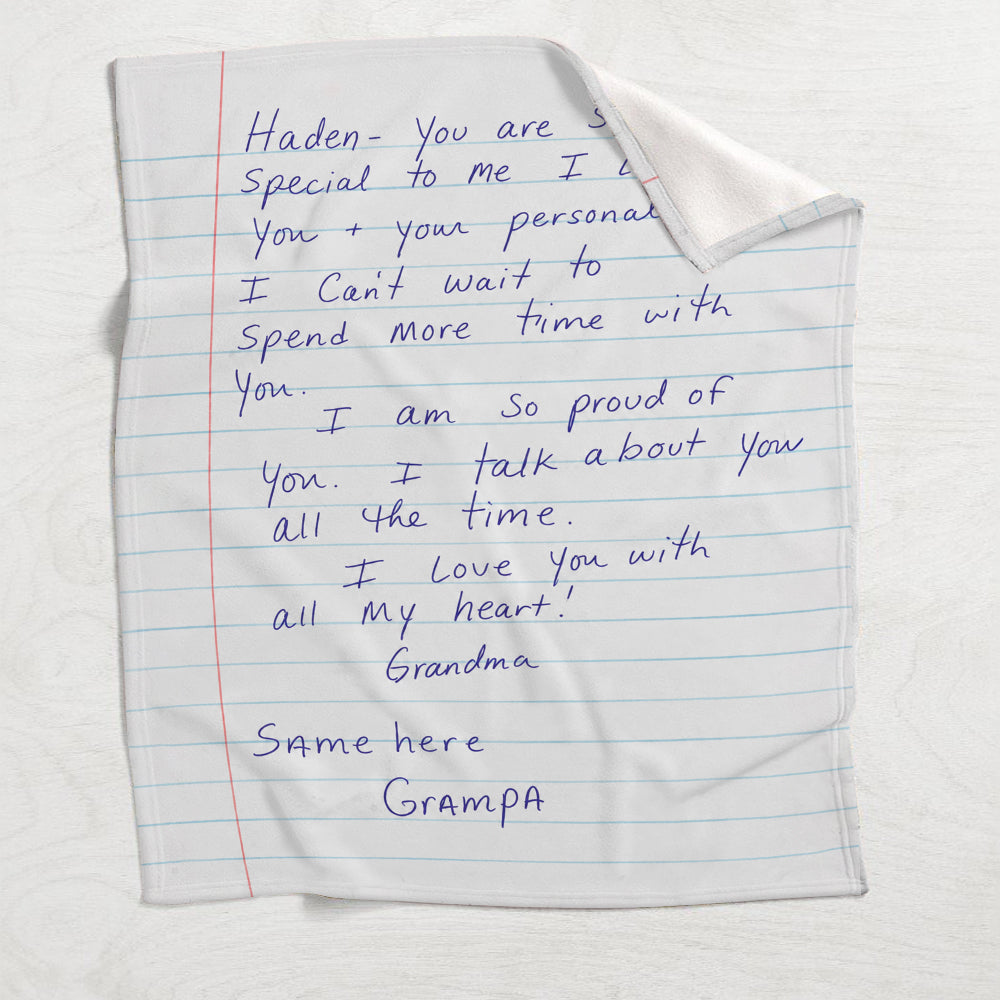 Haden- You are
Special to me I
You + your personal
I Can't wait to
spend more time with
you.
I am so proud of
you. I talk about you
all the time.
I Love you with
all my heart!
Grandma
SAme here
GrAmpA